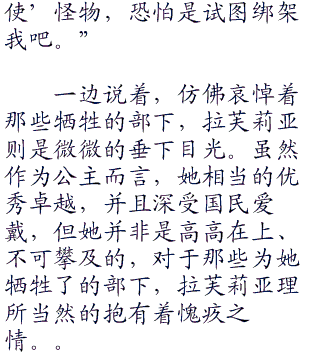 使’怪物，恐怕是试图绑架
我吧。”
一边说着，仿佛哀悼着
那些牺牲的部下，拉芙莉亚
则是微微的垂下目光。虽然
作为公主而言，她相当的优
秀卓越，并且深受国民爱
戴，但她并非是高高在上、
不可攀及的，对于那些为她
牺牲了的部下，拉芙莉亚理
所当然的抱有着愧疚之
情。。